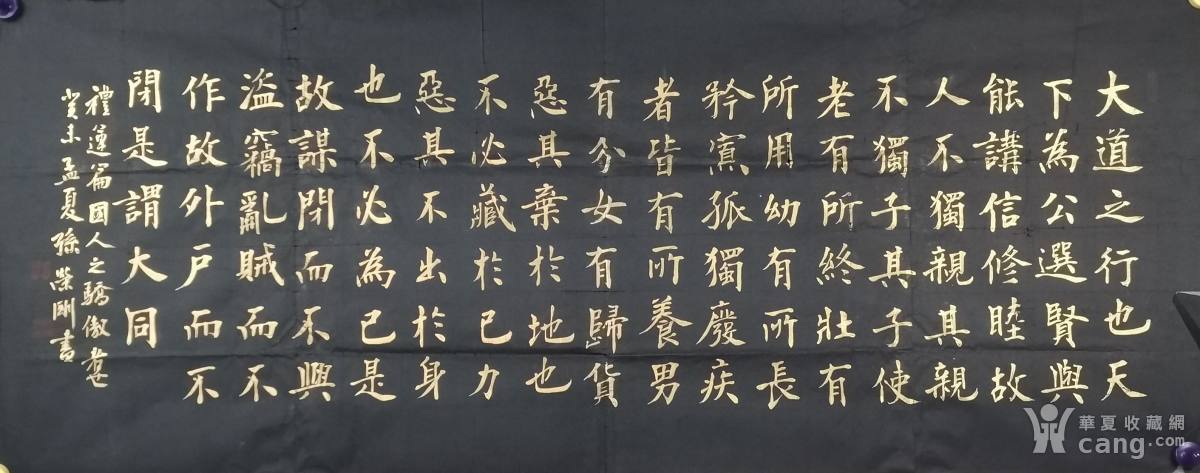 大道之行也天
下為公選賢與
能講信修睦故
人不獨親其親
不獨子其子使
老有所終壯有
所用幼有所長
矜寡孤獨廢疾
者皆有所養男
有分女有歸貨
惡其棄於地也
不必藏於己力
惡其不出於身
也不必為己是
故謀閉而不興
盜竊亂賊而不
作故外戶而不
閉是謂大同
禮運篇國人之驕傲
癸未孟夏孫榮剛書
華夏收藏網
cang.com